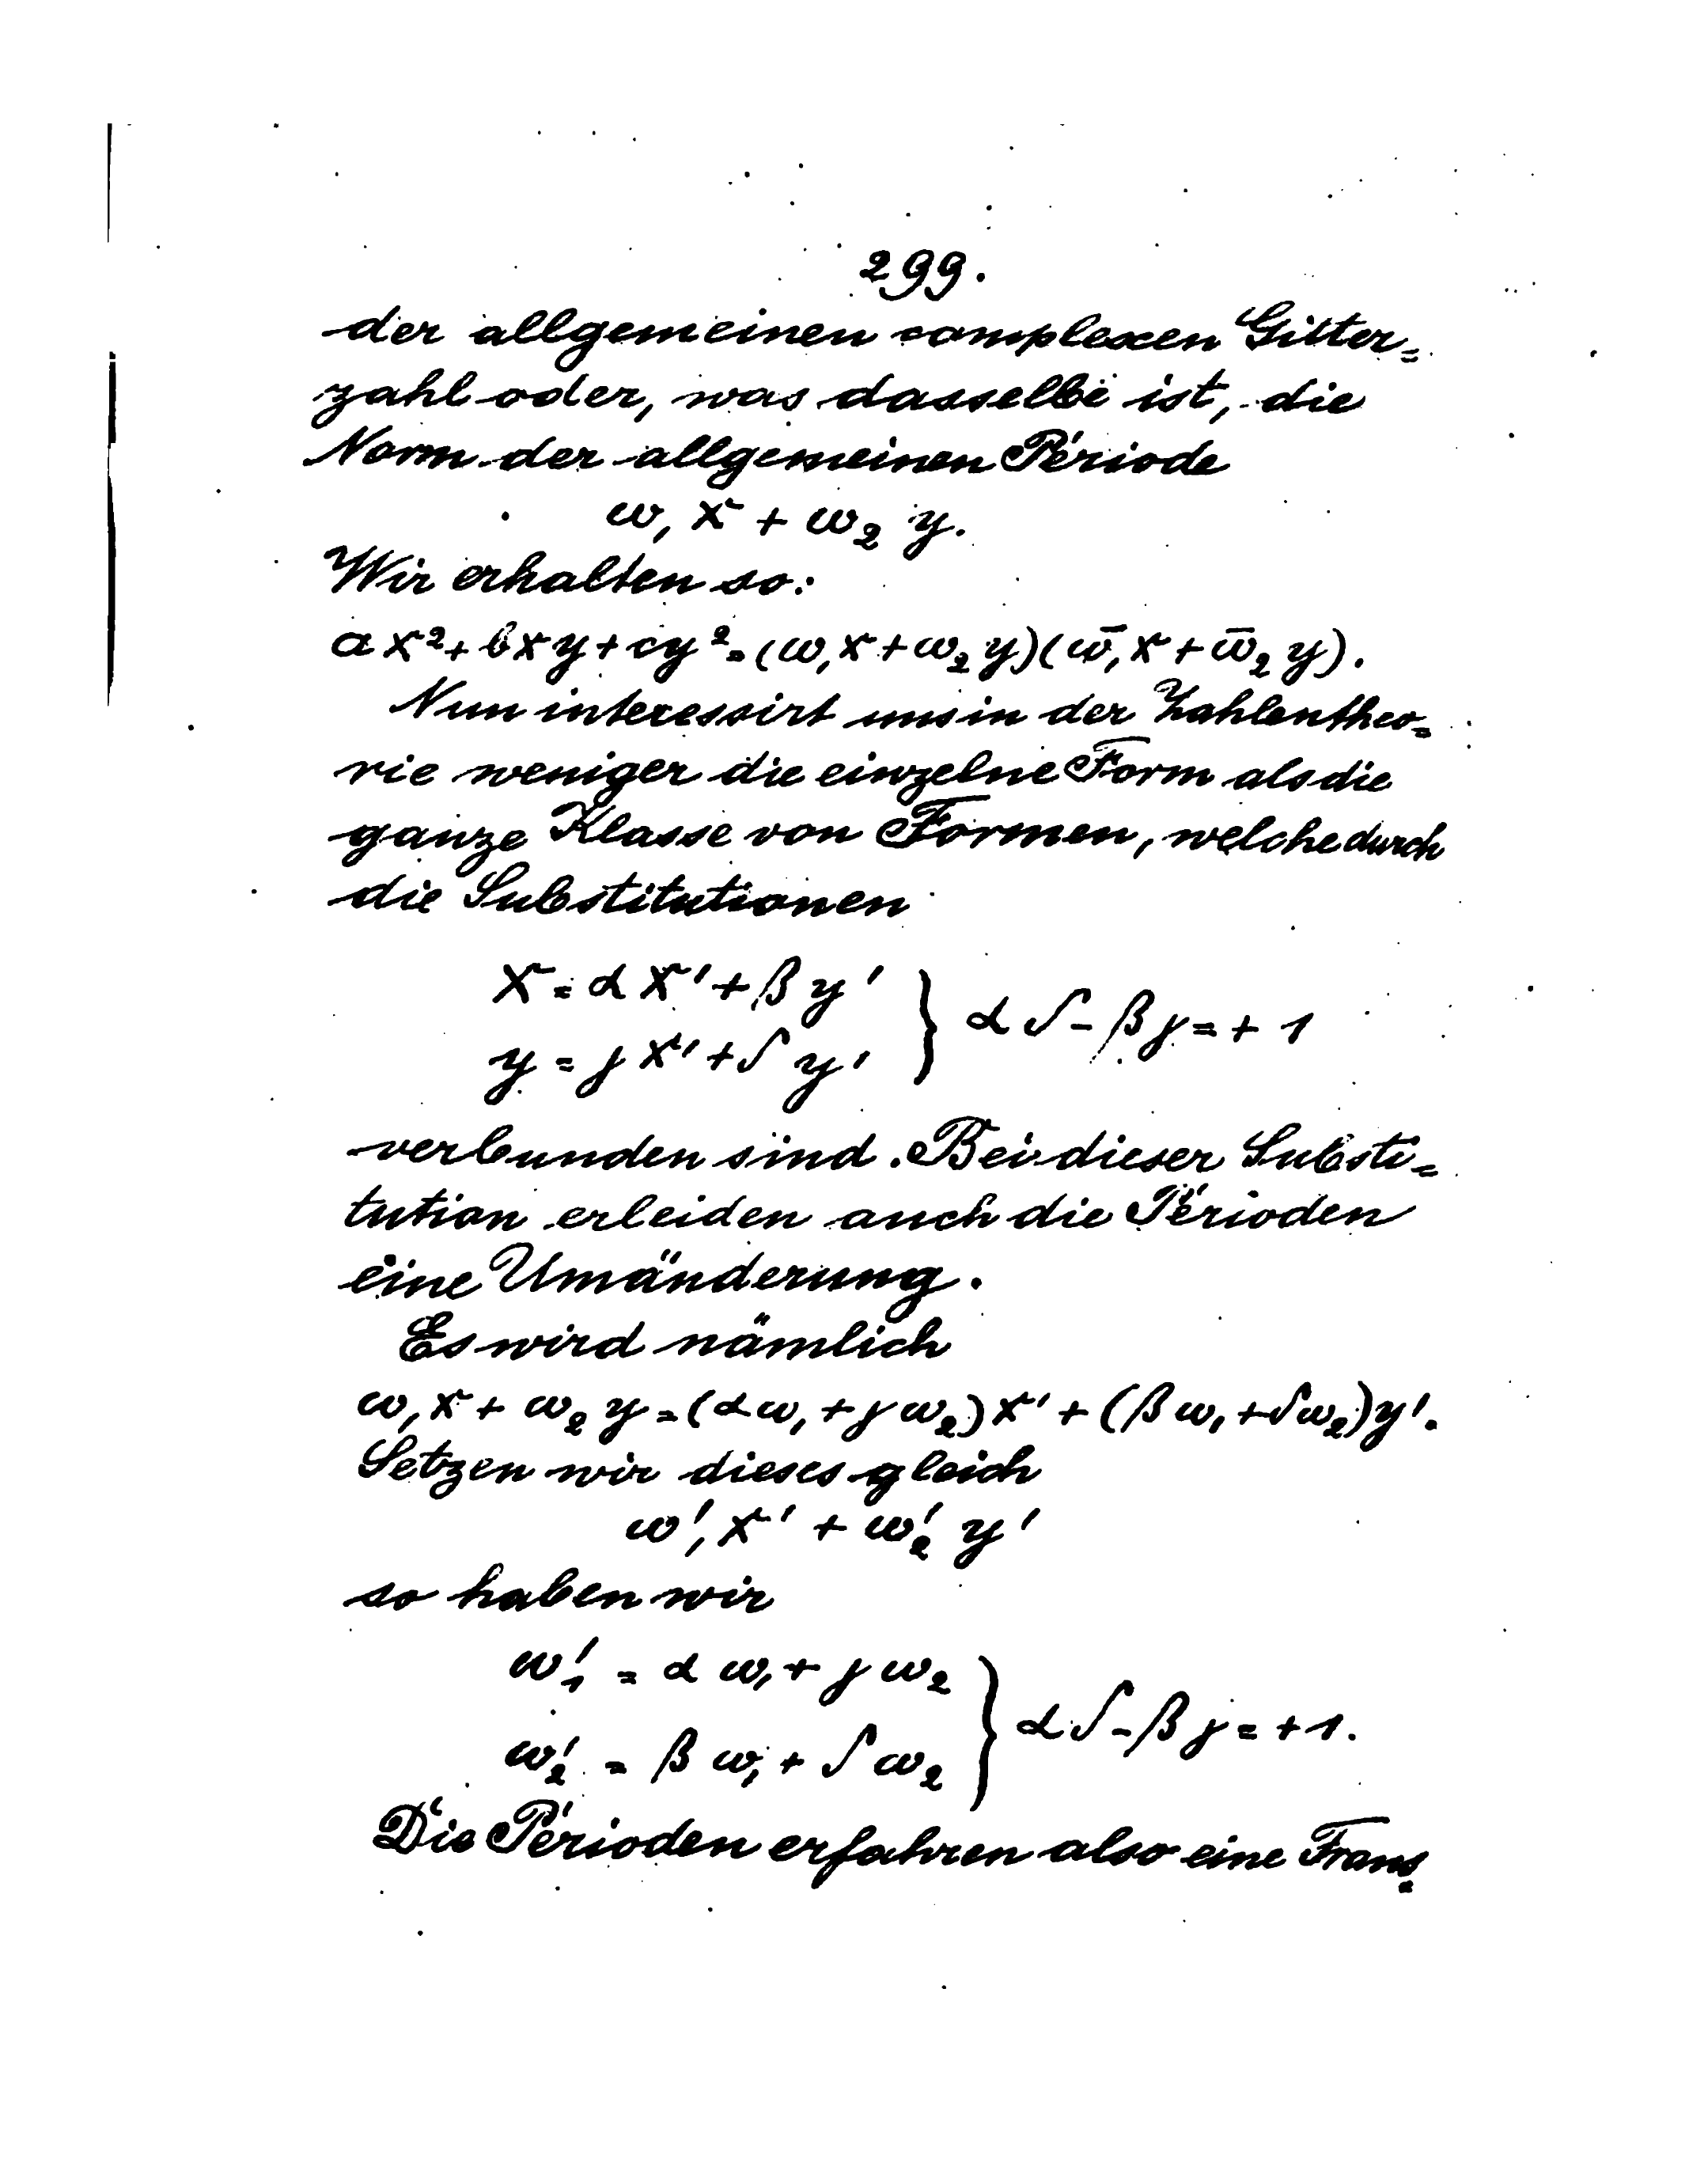 299.
der allgemeinen complexen Gitter=
zahl oder, was dasselbe ist, die
Norm der allgemeinen Periode
ω₁ x + ω₂ y.
Wir erhalten so:
ax² + bxy + cy² = (ω₁x + ω₂y)(ω̄₁x + ω̄₂y).
Nun interessirt uns in der Zahlentheo=
rie weniger die einzelne Form als die
ganze Klasse von Formen, welche durch
die Substitutionen
x = αx' + βy'
y = γx' + δy' } αδ - βγ = +1
verbunden sind. Bei dieser Substi=
tution erleiden auch die Perioden
eine Umänderung.
Es wird nämlich
ω₁x + ω₂y = (αω₁ + γω₂)x' + (βω₁ + δω₂)y'.
Setzen wir dieses gleich
ω'₁x' + ω'₂y'
so haben wir
ω'₁ = αω₁ + γω₂
ω'₂ = βω₁ + δω₂ } αδ - βγ = +1.
Die Perioden erfahren also eine Trans=